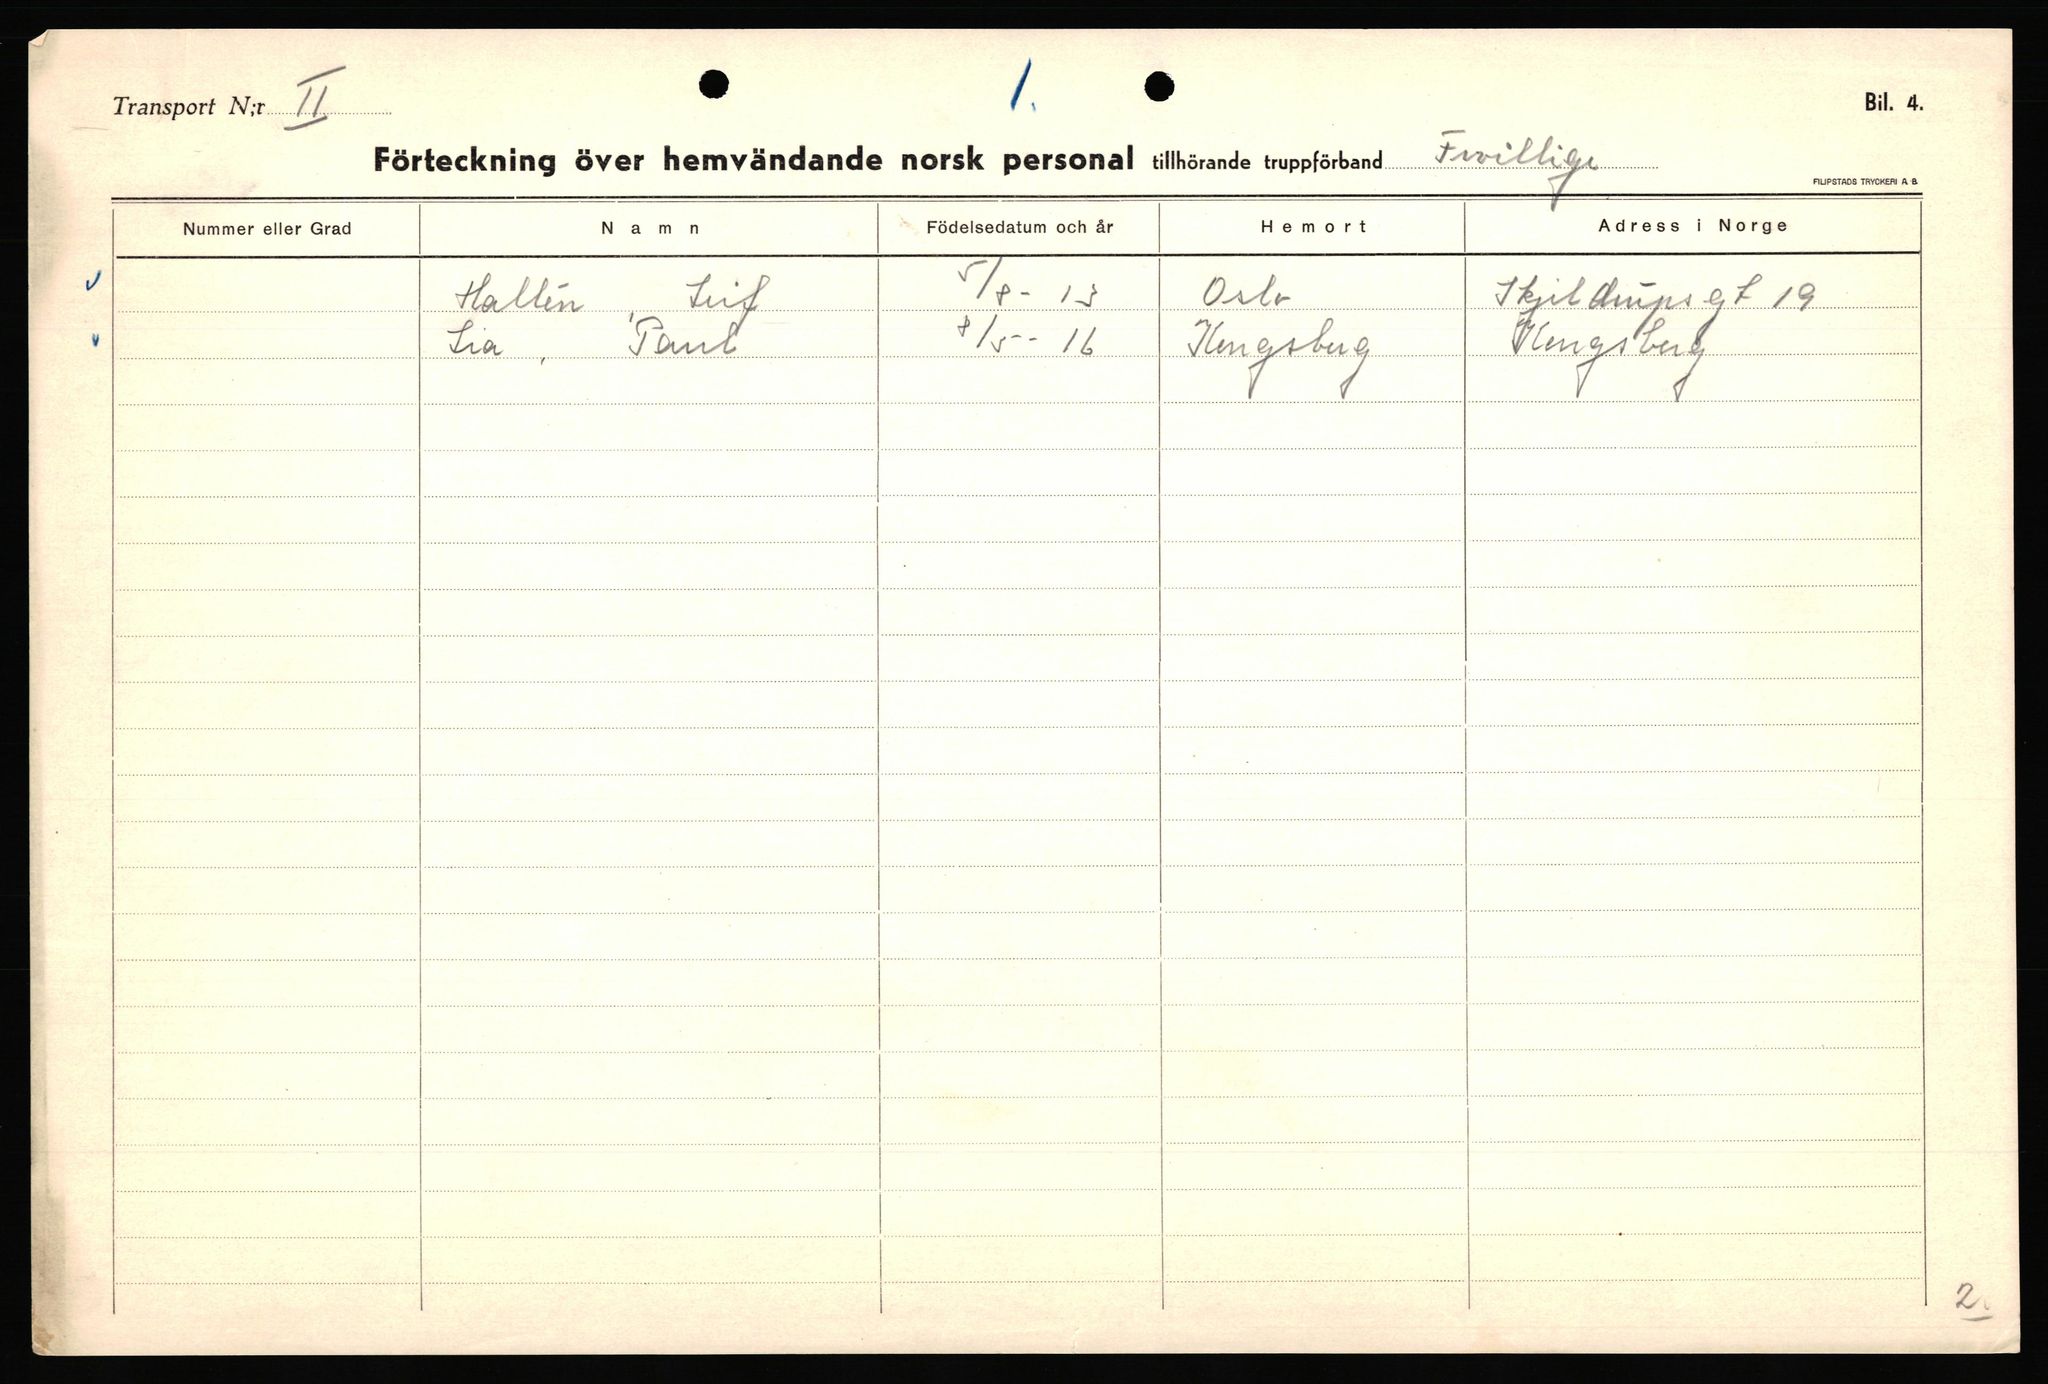 Transport N;r II
1.
Bil. 4.
Förteckning över hemvändande norsk personal tillhörande truppförband Frivillige
FILIPSTADS TRYCKERI A B.
Nummer eller Grad Namn Födelsedatum och år Hemort Adress i Norge
Hallén, Leif 5/8 - 13 Oslo Skjeldrupsgt 19
Lia, Paul 8/5 - 16 Kongsberg Kongsberg
2.